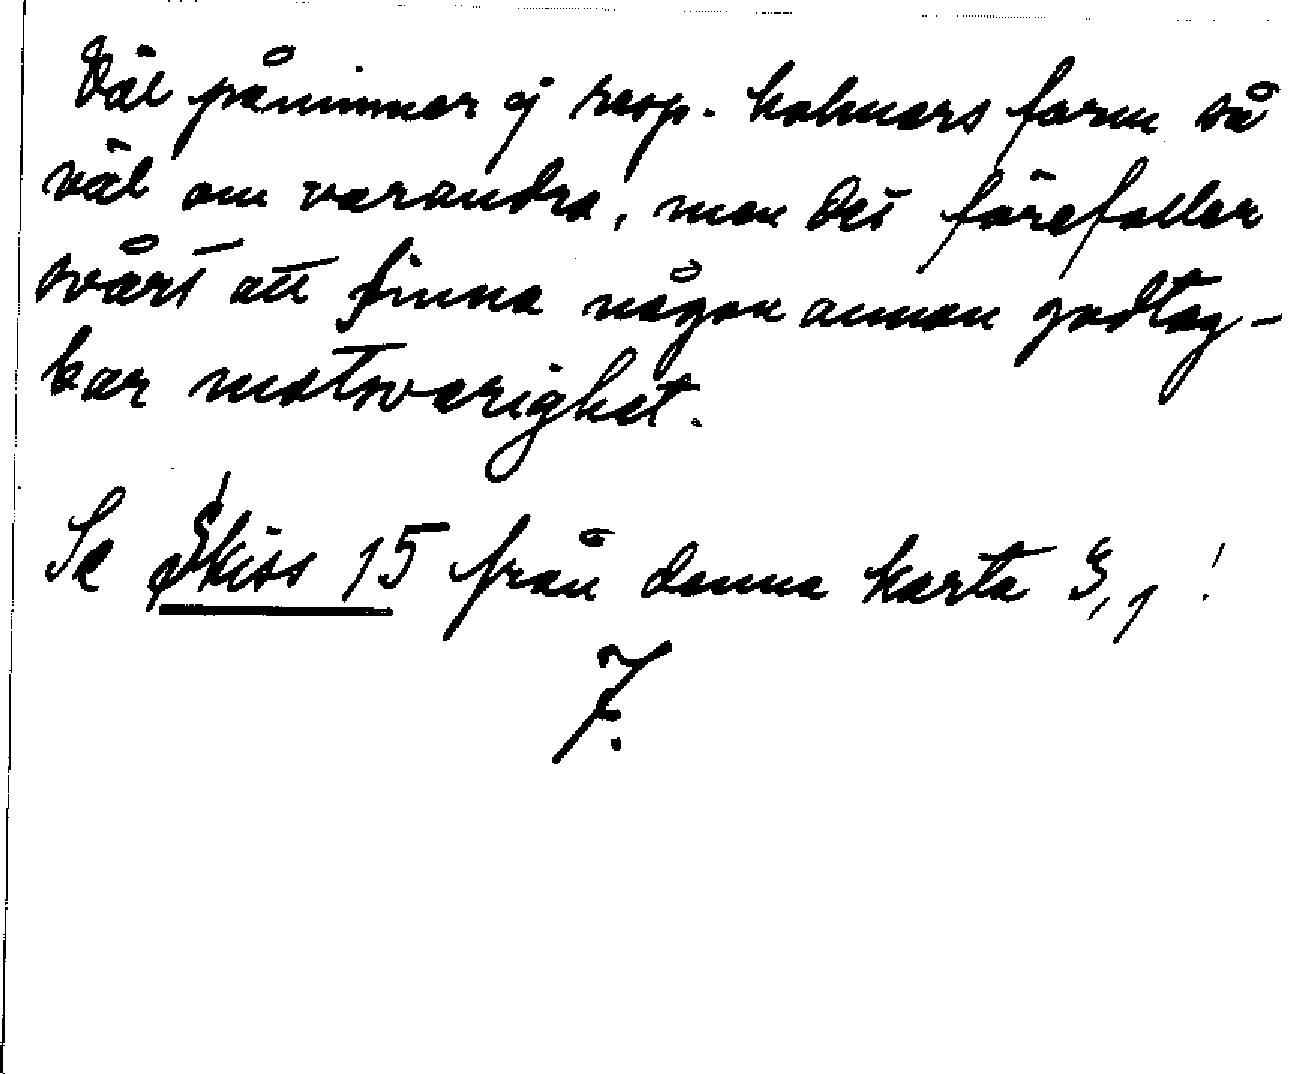 Väl påminner ej resp. holmars form så
väl om varandra, men det förefaller
svårt att finna någon annan godtag-
bar motsvarighet.
Se Skiss 15 från denna karta S, 1 !
7.